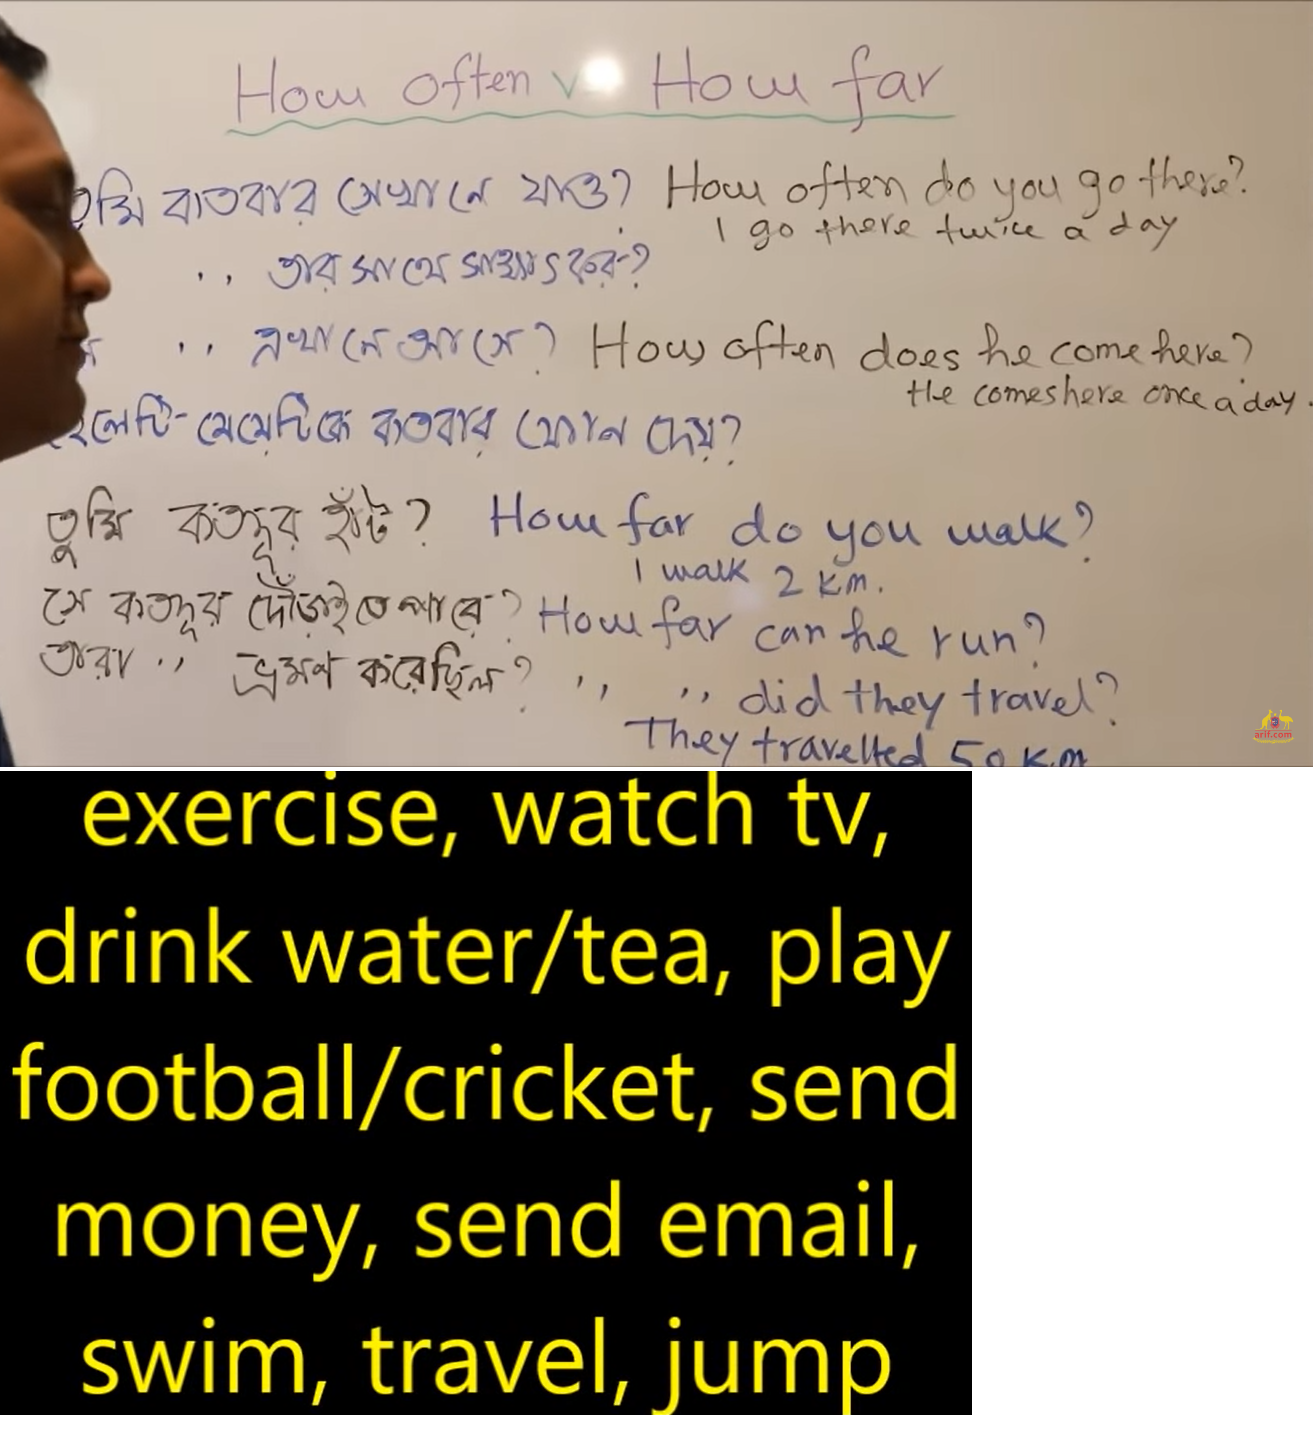 How often vs How far
তুমি কতবার সেখানে যাও? How often do you go there?
I go there twice a day
,, তার সাথে সাক্ষাৎ কর?
,, এখানে আসে? How often does he come here?
He comes here once a day.
ছেলেটি মেয়েটিকে কতবার ফোন দেয়?
তুমি কতদূর হাঁট? How far do you walk?
I walk 2 km.
সে কতদূর দৌঁড়াইতে পারে? How far can he run?
তারা ,, ভ্রমণ করেছিল? ,, ,, did they travel?
They travelled 50 km
arif.com
exercise, watch tv,
drink water/tea, play
football/cricket, send
money, send email,
swim, travel, jump